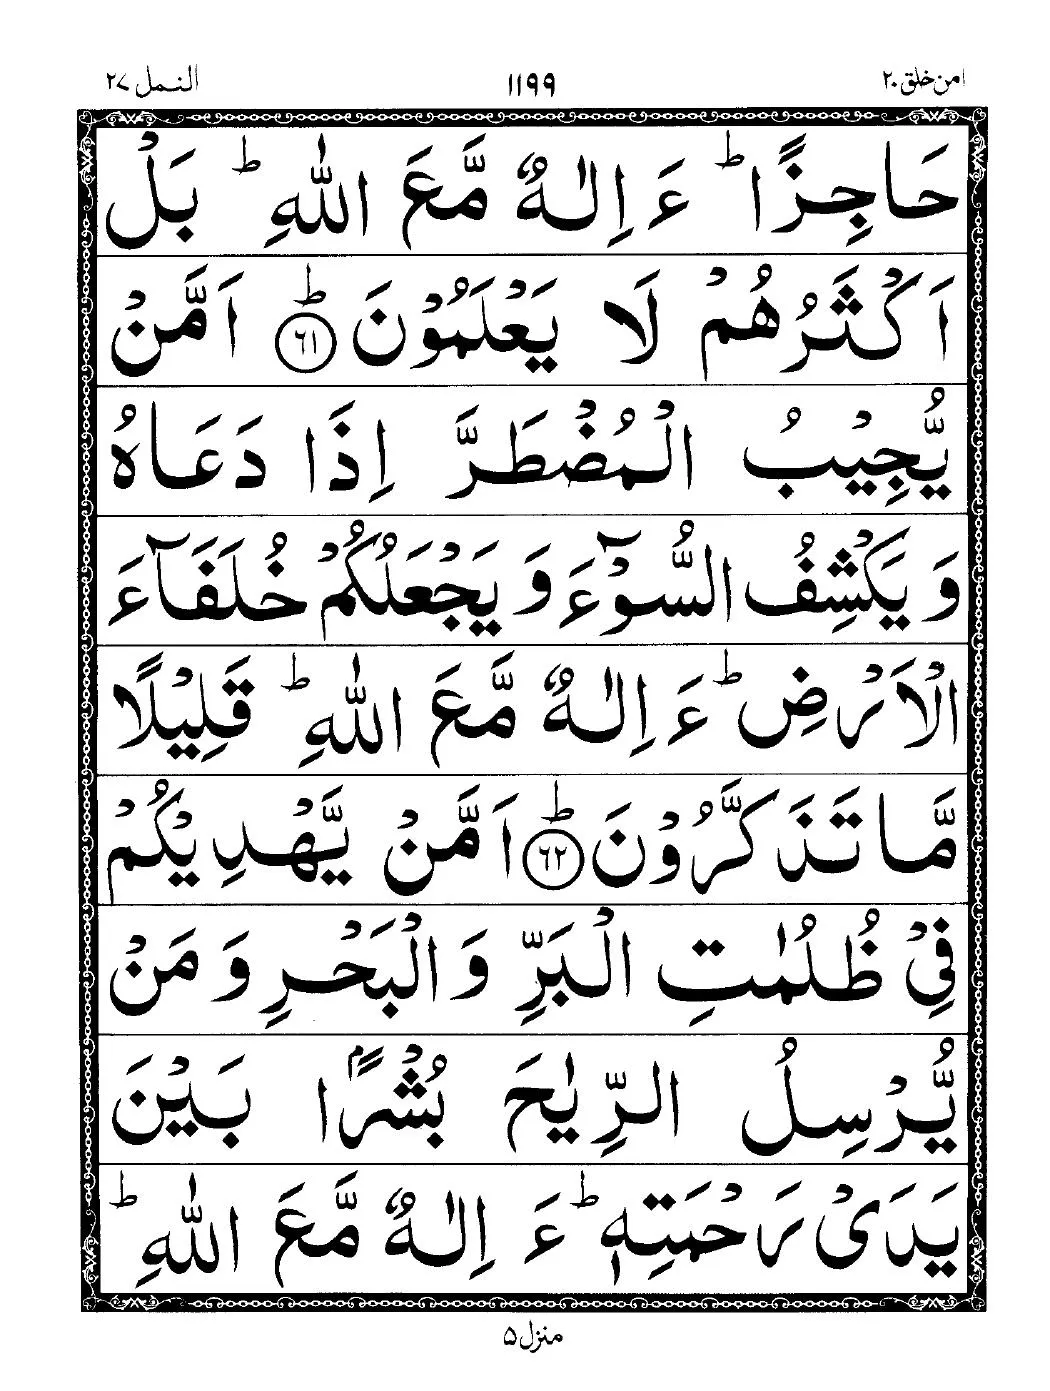 امن خلق ۲۰ ۱۱۹۹ النمل ۲۷
حَاجِزًا ؕ ءَاِلٰهٌ مَّعَ اللّٰهِ ؕ بَلْ
اَكْثَرُهُمْ لَا يَعْلَمُوْنَ ؕ ۶۱ اَمَّنْ
يُّجِيْبُ الْمُضْطَرَّ اِذَا دَعَاهُ
وَيَكْشِفُ السُّوْٓءَ وَيَجْعَلُكُمْ خُلَفَآءَ
الْاَرْضِ ؕ ءَاِلٰهٌ مَّعَ اللّٰهِ ؕ قَلِيْلًا
مَّا تَذَكَّرُوْنَ ؕ ۶۲ اَمَّنْ يَّهْدِيْكُمْ
فِيْ ظُلُمٰتِ الْبَرِّ وَالْبَحْرِ وَمَنْ
يُّرْسِلُ الرِّيٰحَ بُشْرًۢا بَيْنَ
يَدَيْ رَحْمَتِهٖ ؕ ءَاِلٰهٌ مَّعَ اللّٰهِ ؕ
منزل ۵